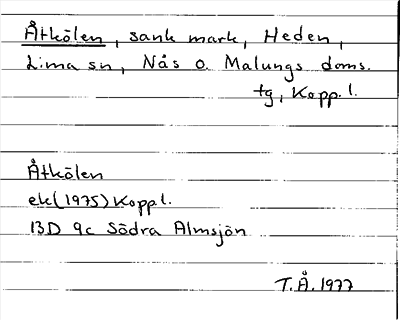 Åtkölen, sank mark, Heden,
Lima sn, Nås o. Malungs doms.
tg, Kopp. l.
Åtkölen
ek (1975) Kopp l.
13D 9c Södra Almsjön
T.Å. 1977